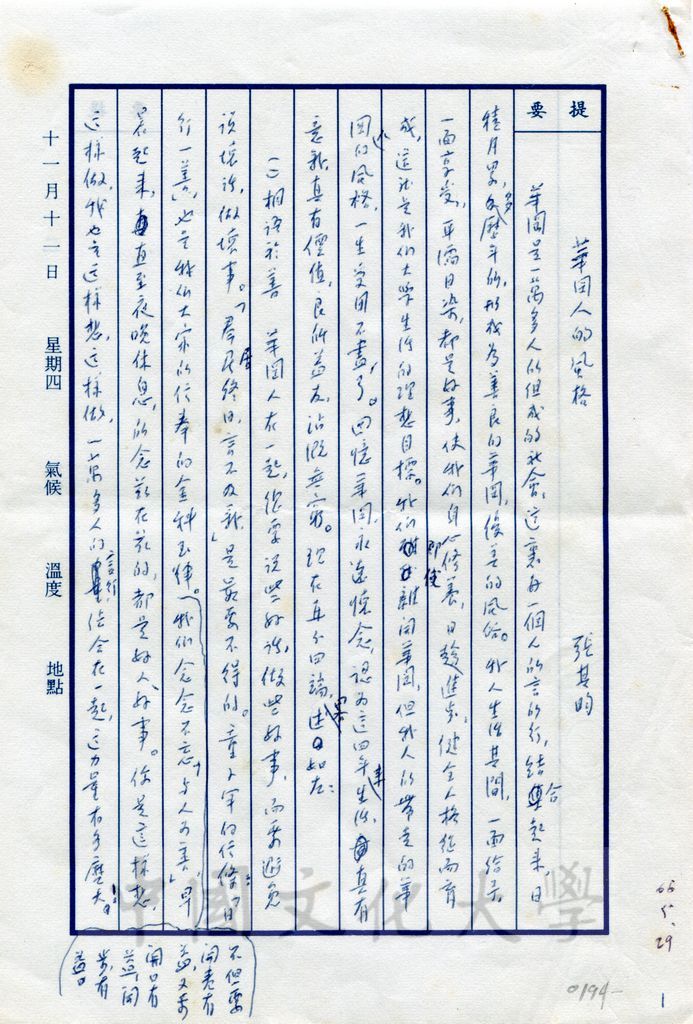 提要
華岡人的風格
張其昀
華岡是一萬多人所組成的社會,這裏每一個人的言的行,結合起來,日
積月累,多歷年所,形成為善良的華岡,優美的風俗。我人生活其間,一面給予
一面享受,耳濡目染,都是好事,使我們身心修養,日趨進步,健全人格從而育
成,這就是我們大學生活的理想目標。我們即使離開華岡,但我人所帶走的華
岡人的風格,一生受用不盡了。回憶華岡,永遠懷念,認為這四年生活,真有
意義,真有價值,良師益友,沾溉無窮。現在再分四端,略如左:
(一)相語於善 華岡人在一起,總要說些好話,做些好事,而要避免
說壞話,做壞事。「羣居終日,言不及義」是最要不得的。童子軍的信條「日
行一善」,也是我們大家的信奉的金科玉律。我們念念不忘,「與人為善」,早
晨起來,直至夜晚休息,所念茲在茲的,都是好人好事。你是這樣想,
這樣做,我也是這樣想,這樣做,一萬多人的言行,結合在一起,這力量有多麼大!
不但要
開卷有
益,又要
開口有
益,開
步有
益
十一月十一日 星期四 氣候 溫度 地點
中國文化大學
66.5.29
1
0194-